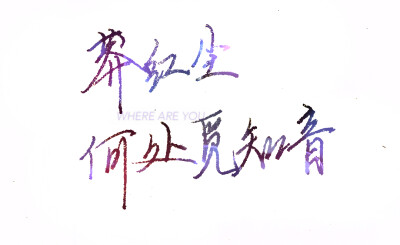 莽红尘
WHERE ARE YOU
何处觅知音